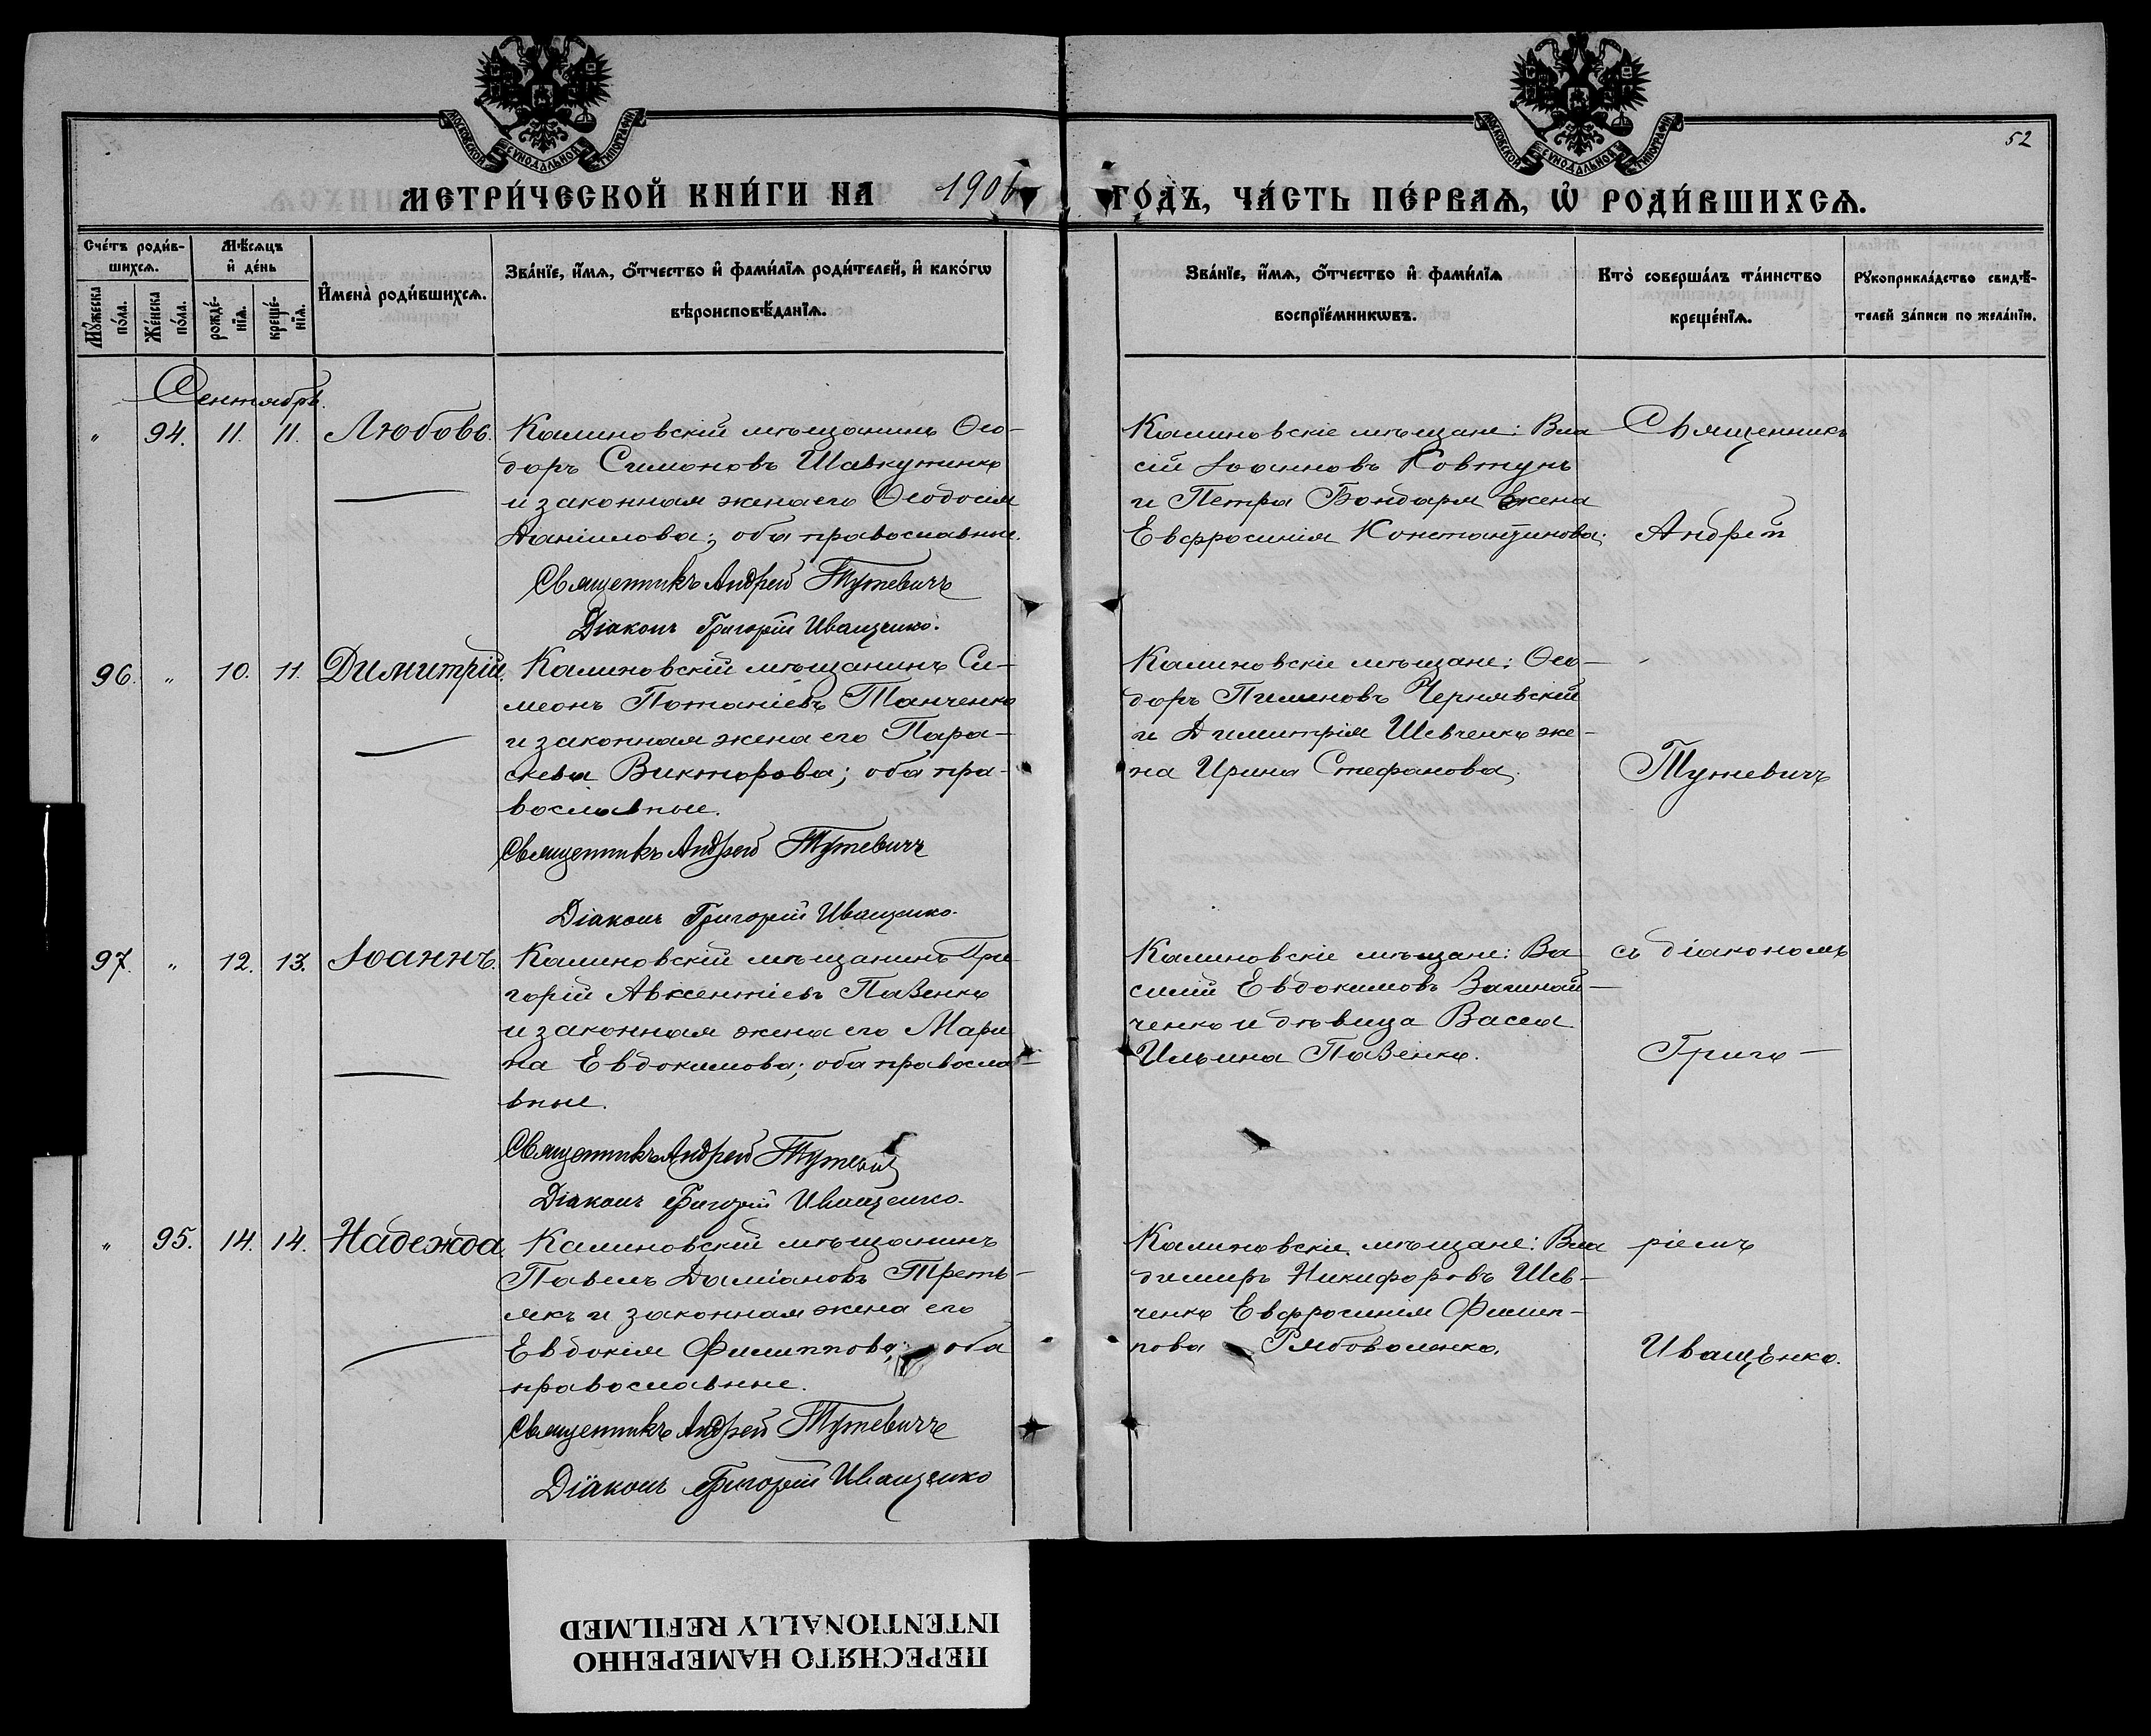 МОСКОВСКОЙ СѴНОДАЛЬНОЙ ТИПОГРАФІИ
МОСКОВСКОЙ СѴНОДАЛЬНОЙ ТИПОГРАФІИ
52
МЕТРИ́ЧЕСКОЙ КНИ́ГИ НА 1906
ГО́ДЪ, ЧА́СТЬ ПЕ́РВАѦ, Ѡ҆ РОДИ́ВШИХСѦ.
Сче́тъ роди́в-
шихсѧ.
Мѣ́сѧцъ
и҆ де́нь
Мꙋ́жеска по́ла.
Же́нска по́ла.
рожде́-нїѧ.
креще́-нїѧ.
И҆мена̀ роди́вшихсѧ.
Зва́нїе, и҆́мѧ, ѻ҆́тчество и҆ фами́лїѧ роди́телей, и҆ како́гѡ
вѣроисповѣ́данїѧ.
Зва́нїе, и҆́мѧ, ѻ҆́тчество и҆ фами́лїѧ
воспрїе́мникѡвъ.
Кто̀ соверша́лъ та́инство
креще́нїѧ.
Рꙋкоприкла́дство свидѣ́-
телей за́писи по жела́нїю.
Сентябрь.
" 94. 11. 11. Любовь. Калиновскій мѣщанинъ Ѳео-
доръ Симоновъ Шавкутенко
и законная жена его Ѳеодосія
Даніилова; оба православные.
Священникъ Андрей Тутевичъ
Діаконъ Григорій Иващенко.
Калиновскіе мѣщане: Вла
сій Іоанновъ Ковтунъ
и Петра Бондаря жена
Евфросинія Константинова;
Священникъ
Андрей
96. " 10. 11. Димитрій. Калиновскій мѣщанинъ Си-
меонъ Потапіевъ Танченко
и законная жена его Пара-
скева Викторова; оба пра-
вославные.
Священникъ Андрей Тутевичъ
Діаконъ Григорій Иващенко.
Калиновскіе мѣщане: Ѳео-
доръ Пименовъ Чернявскій
и Димитрія Шевченко же-
на Ирина Стефанова.
Тутевичъ
97. " 12. 13. Іоаннъ. Калиновскій мѣщанинъ Гри
горій Авксентіевъ Павенко
и законная жена его Мари
на Евдокимова; оба правосла-
вные.
Священникъ Андрей Тутевич
Діаконъ Григорій Иващенко.
Калиновскіе мѣщане: Ва
силій Евдокимовъ
ченко и дѣвица Васса
Ильина Павенко.
съ діакономъ
Григо-
" 95. 14. 14. Надежда. Калиновскій мѣщанинъ
Павелъ Даміановъ Треть-
якъ и законная жена его
Евдокія Филиппова; оба
православные.
Священникъ Андрей Тутевичъ
Діаконъ Григорій Иващенко
Калиновскіе мѣщане: Вла
димиръ Никифоровъ Шев-
ченко Евфросинія Филип-
пова Рябоваленко.
ріемъ
Иващенко.
ПЕРЕСНЯТО НАМЕРЕННО
INTENTIONALLY REFILMED